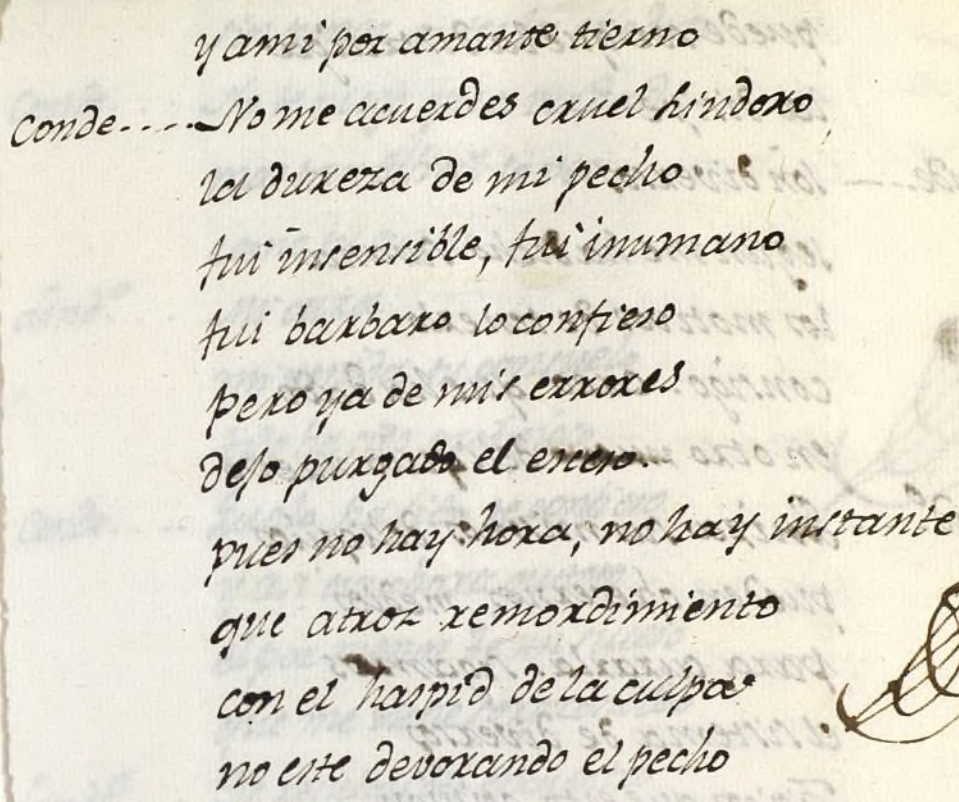 y ami por amante tierno
Conde..... No me acuerdes cruel hindoro
la dureza de mi pecho
fui insensible, fui inumano
fui barbaro lo confieso
pero ya de mis errores
dejo purgado el exceso.
pues no hay hora, no hay instante
que atroz remordimiento
con el haspid de la culpa
no este devorando el pecho